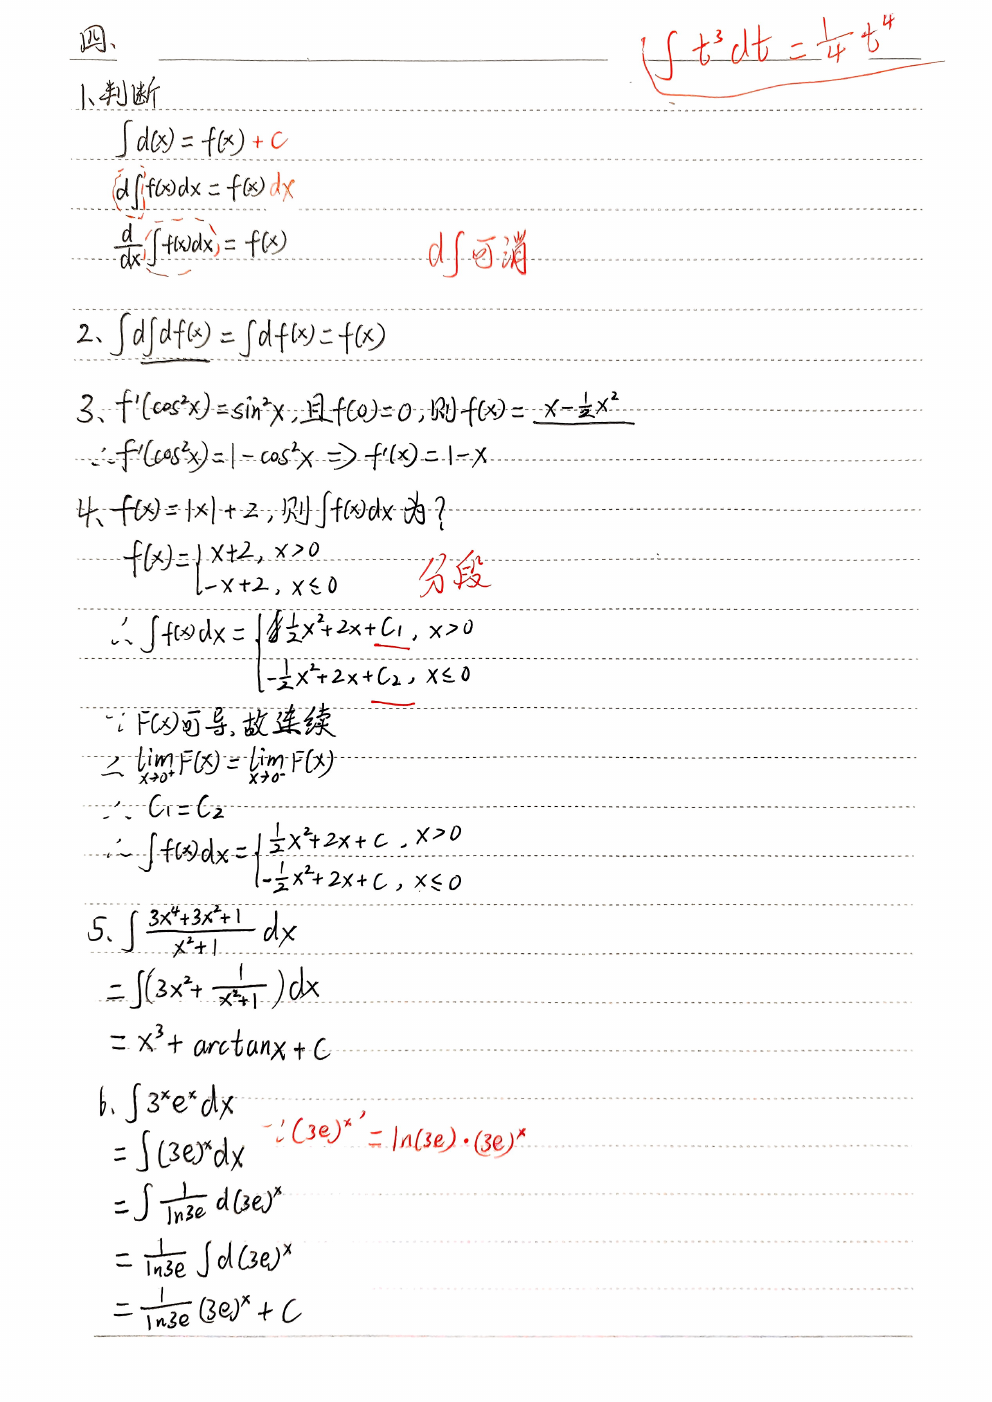 四、
∫t³dt = 1/4 t⁴
1、判断
∫d(x) = f(x) + C
d∫f(x)dx = f(x) dx
d/dx ∫f(x)dx = f(x)
d∫可消
2、∫d∫df(x) = ∫df(x) = f(x)
3、f'(cos²x) = sin²x, 且f(0) = 0, 则f(x) = x - 1/2 x²
∴ f'(cos²x) = 1 - cos²x => f'(x) = 1 - x
4、f(x) = |x| + 2, 则∫f(x)dx 为?
f(x) = { x+2, x>0
-x+2, x≤0
分段
∴ ∫f(x)dx = { 1/2 x² + 2x + C₁, x>0
-1/2 x² + 2x + C₂, x≤0
∵ F(x)可导, 故连续
∴ lim x→0⁺ F(x) = lim x→0⁻ F(x)
∴ C₁ = C₂
∴ ∫f(x)dx = { 1/2 x² + 2x + C, x>0
-1/2 x² + 2x + C, x≤0
5、∫ (3x⁴+3x²+1)/(x²+1) dx
= ∫(3x² + 1/(x²+1))dx
= x³ + arctanx + C
6、∫3ˣeˣdx
= ∫(3e)ˣdx
∵ (3e)ˣ' = ln(3e)·(3e)ˣ
= ∫ 1/ln3e d(3e)ˣ
= 1/ln3e ∫d(3e)ˣ
= 1/ln3e (3e)ˣ + C